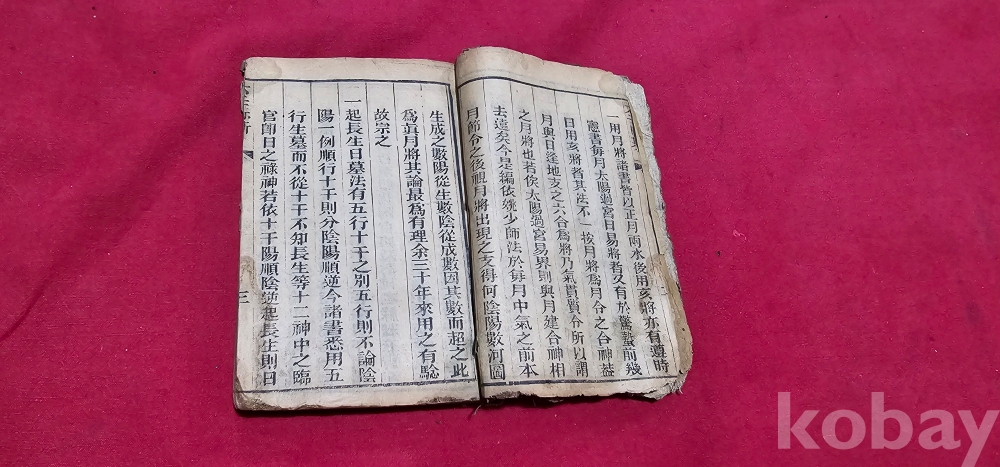 一用月將諸書皆以正月雨水後用亥將亦有遵時
憲書每月太陽過宮日易將者又有於驚蟄前幾
日用亥將者其法不一按月將為月令之合神蓋
月與日逢地支之六合為將乃氣貫質合所以謂
之月將也若俟太陽過宮易界則與月建合神相
去遠矣今是編依姚少師法於每月中氣之前本
月節令之後視月將出現之支得何陰陽數河圖
生成之數陽從生數陰從成數因其數而超之此
為眞月將其論最為有理余三十年來用之有驗
故宗之
一起長生日墓法有五行十干之別五行則不論陰
陽一例順行十干則分陰陽順逆今諸書悉用五
行生墓而不從十干不知長生等十二神中之臨
官卽日之祿神若依十干陽順陰逆起長生則日
三
kobay